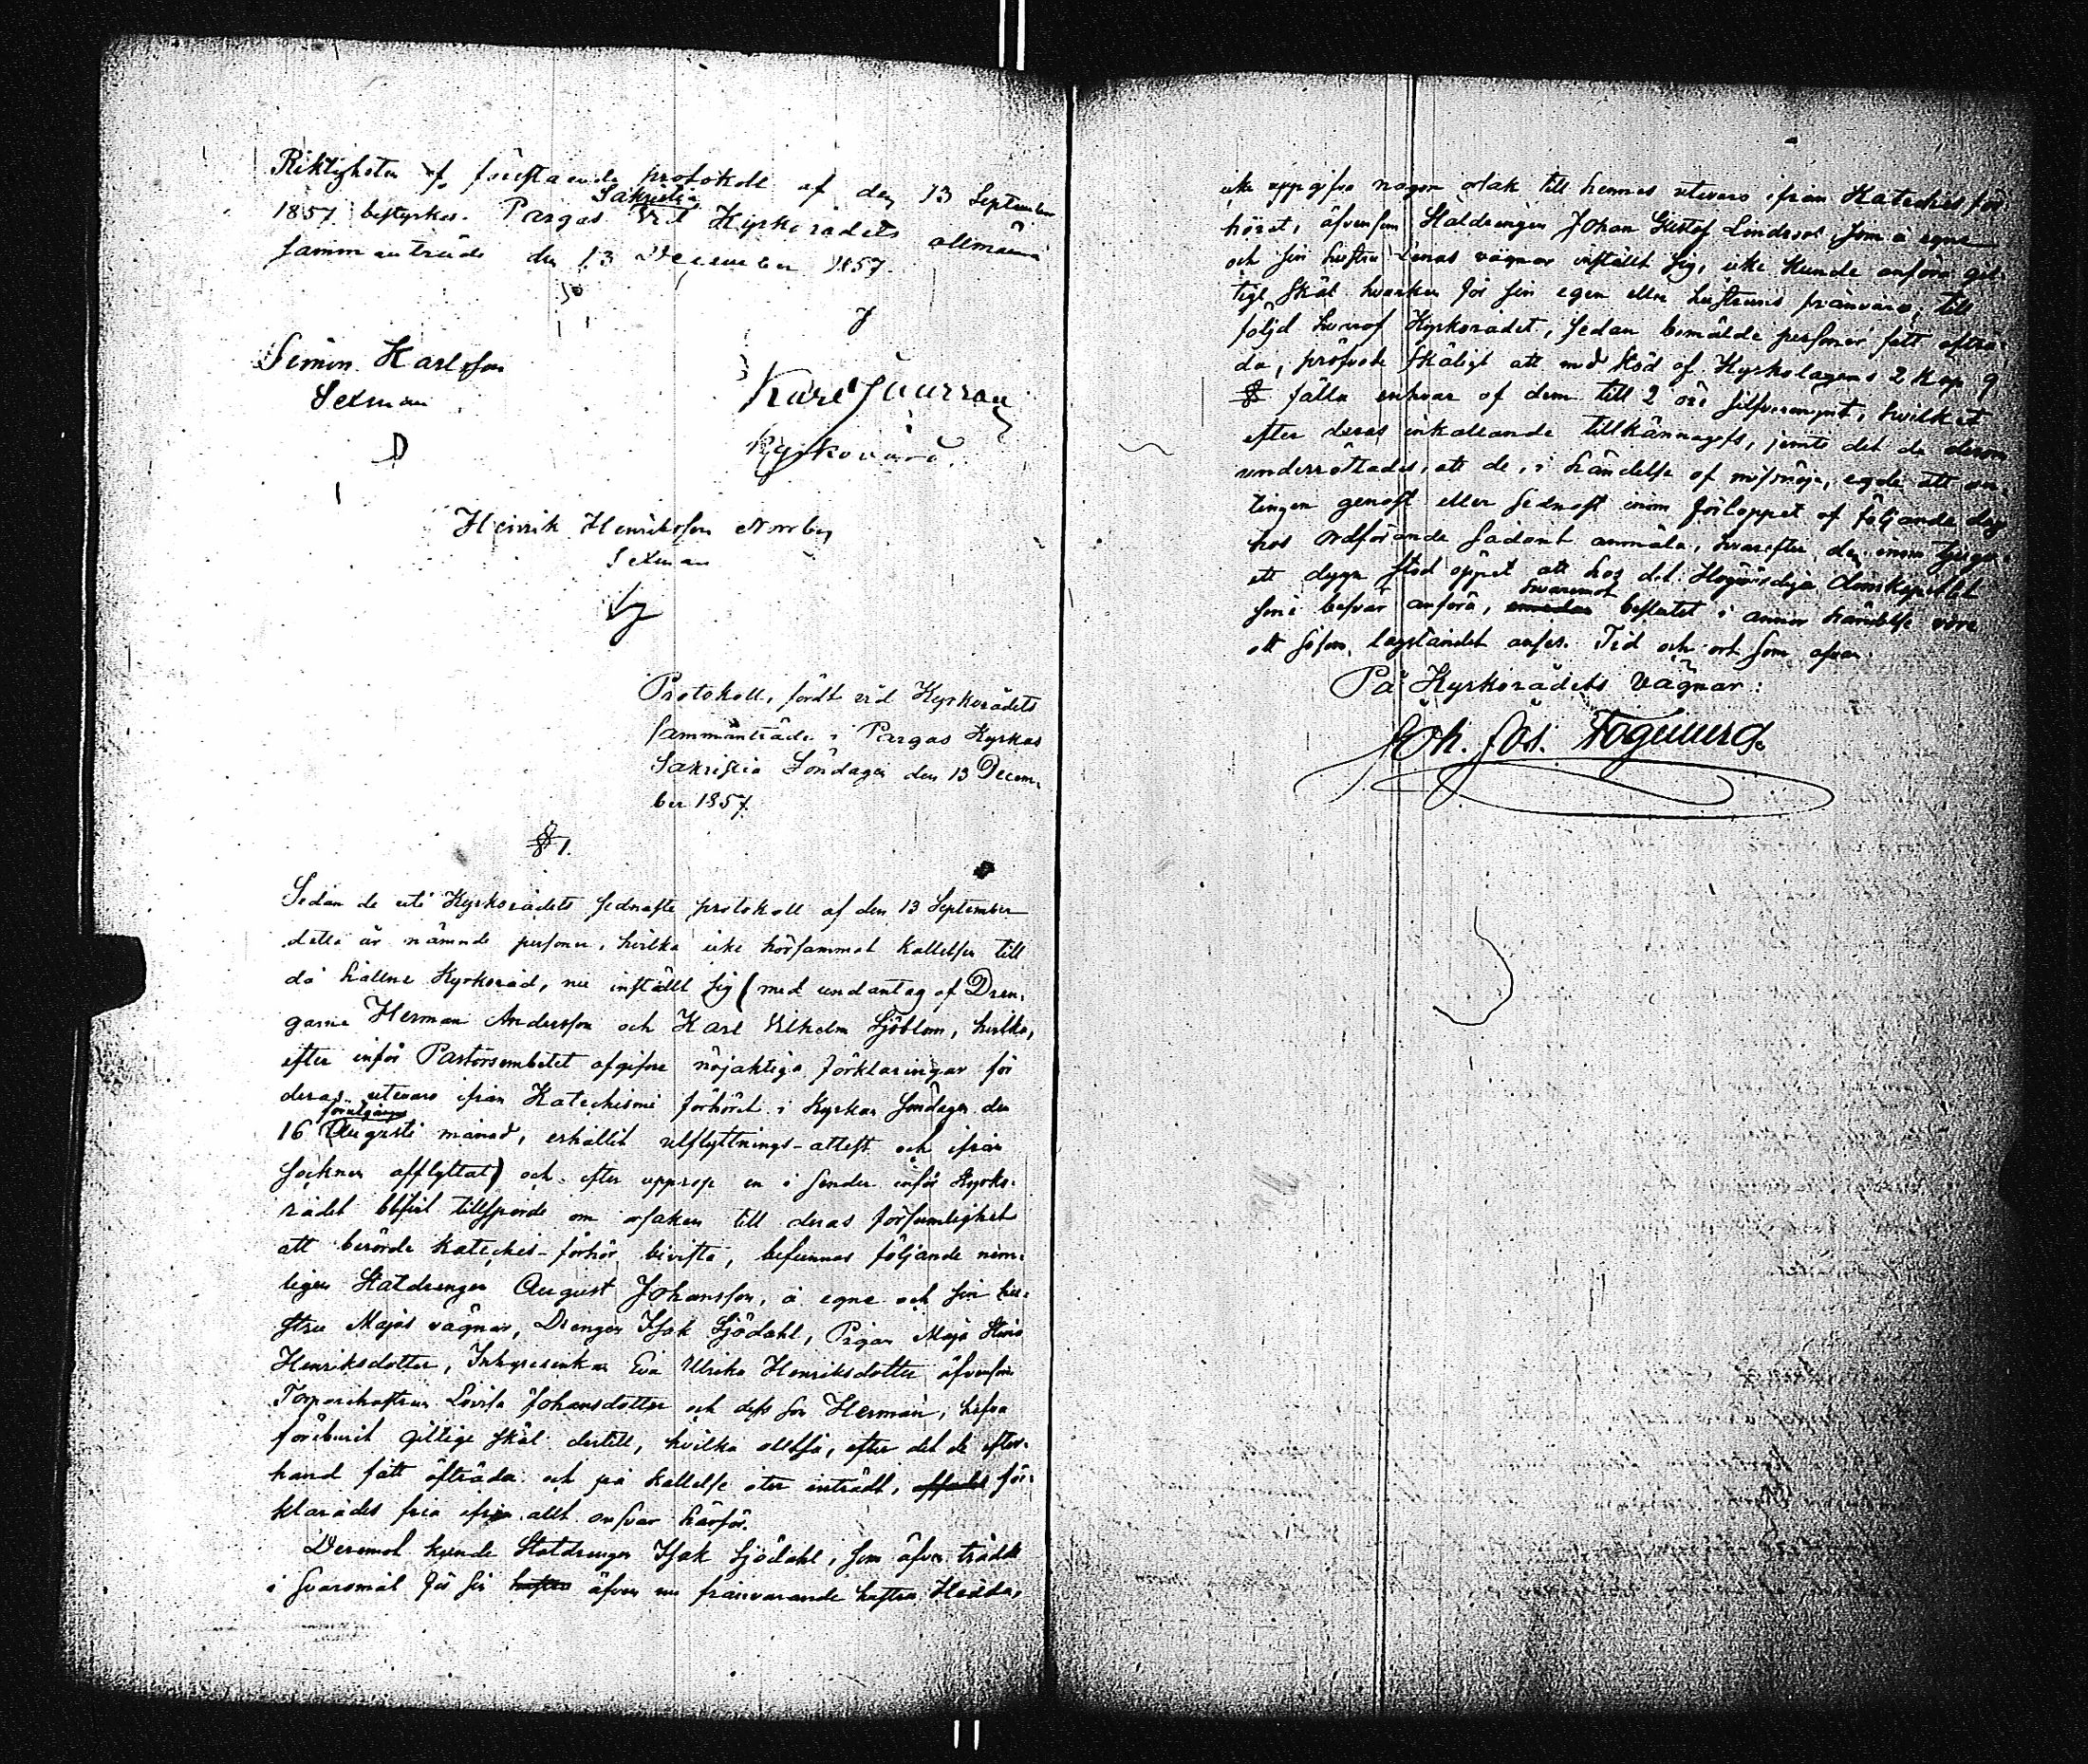 Riktigheten af förestående protokoll af den 13 September
1857 bestyrkes. Pargas Sakristia vid Kyrkorådets allmänna
sammanträde den 13 December 1857.
Simon Karlsson
Sexman
Karl
Kyrkovärd.
Henrik Henriksson Norrby
Sexman
Protokoll, fördt vid Kyrkorådets
sammanträde i Pargas Kyrkas
Sakristia Söndagen den 13 Decem-
ber 1857.
§ 1.
Sedan de uti Kyrkorådets sednaste protokoll af den 13 September
detta år nämnde personer, hvilka icke hörsammat kallelsen till
då hållne Kyrkoråd, nu inställt sig (med undantag af Dren-
garne Herman Andersson och Karl Vilhelm Sjöblom, hvilka,
efter inför Pastorsembetet afgifne nöjaktiga förklaringar för
deras utevaro ifrån Katechismi förhöret i Kyrkan Söndagen den
16 förutgångne Augusti månad, erhållit utflyttnings-attest och ifrån
Socknen afflyttat) och efter upprop en i sender inför Kyrko-
rådet blifvit tillsporde om orsaken till deras försumlighet
att berörde Katechis-förhör bivista, befunnos följande nem-
ligen Statdrengen August Johansson, å egne och sin hu-
stru Majas vägnar, Drengen Isak Sjödahl, Pigan Maja Stina
Henriksdotter, Inhyresenkan Eva Ulrika Henriksdotter äfvensom
Torparehustrun Lovisa Johansdotter och dess son Herman, hafva
föreburit giltige skäl dertill, hvilka alltså, efter det de efter-
hand fått afträda och på kallelse åter inträdt, för-
klarades fria ifrån allt ansvar härför.
Deremot kunde Statdrengen Isak Sjödahl, som äfven trädde
i svaromål för sin hustru äfven nu frånvarande hustru Hedda,
icke uppgifva någon orsak till hennes utevaro ifrån Katechisför-
höret, äfvensom Statdrengen Johan Gustaf Lindroos, som å egne
och sin hustru Lenas vägnar inställt sig, icke kunde anföra gil-
tigt skäl hvarken för sin egen eller hustruns frånvaro; till
följd hvaraf Kyrkorådet, sedan bemälde personer fått afträ-
da, pröfvade skäligt att med stöd af Kyrkolagens 2 Kap 9
§ fälla enhvar af dem till 2 öre silfvermynt, hvilket
efter deras inkallande tillkännagafs, jemte det de derom
underrättades, att de, i händelse af missnöje, egde att an-
tingen genast eller sednast inom förloppet af följande dag
hos Ordförande sådant anmäla, hvarefter dem inom tjugu-
ett dygn stod öppet att hos det Högvördiga Domkapitlet
sine besvär anföra, hvaremot beslutet i annor händelse vore
att såsom lagståndet anses. Tid och ort som ofvan.
På Kyrkorådets Vägnar:
Joh. Jas. Fogelberg